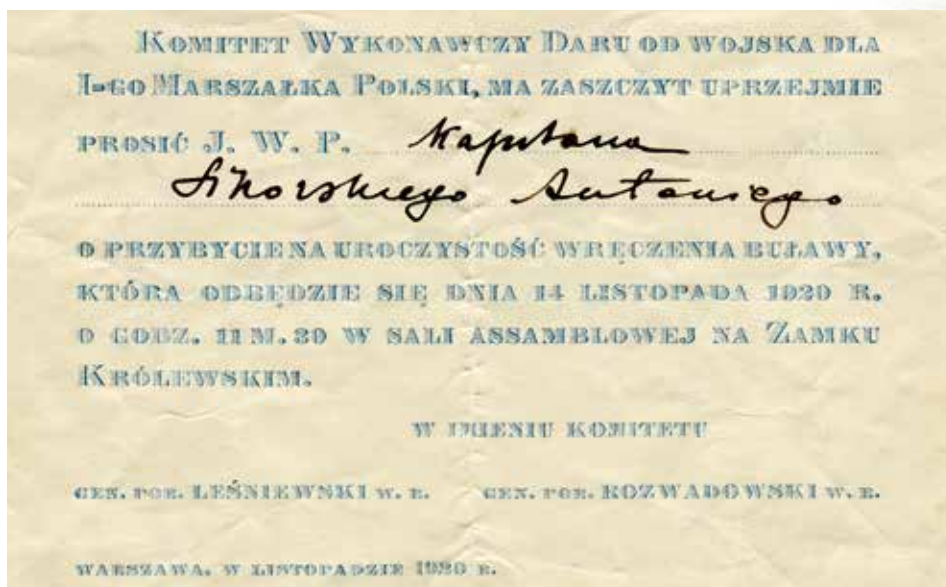 KOMITET WYKONAWCZY DARU OD WOJSKA DLA
I-GO MARSZAŁKA POLSKI, MA ZASZCZYT UPRZEJMIE
PROSIĆ J. W. P. Kapitana
Sikorskiego Antoniego
O PRZYBYCIE NA UROCZYSTOŚĆ WRĘCZENIA BUŁAWY,
KTÓRA ODBĘDZIE SIĘ DNIA 14 LISTOPADA 1920 R.
O GODZ. 11 M. 30 W SALI ASSAMBLOWEJ NA ZAMKU
KRÓLEWSKIM.
W IMIENIU KOMITETU
GEN. POR. LEŚNIEWSKI W. R. GEN. POR. ROZWADOWSKI W. R.
WARSZAWA, W LISTOPADZIE 1920 R.